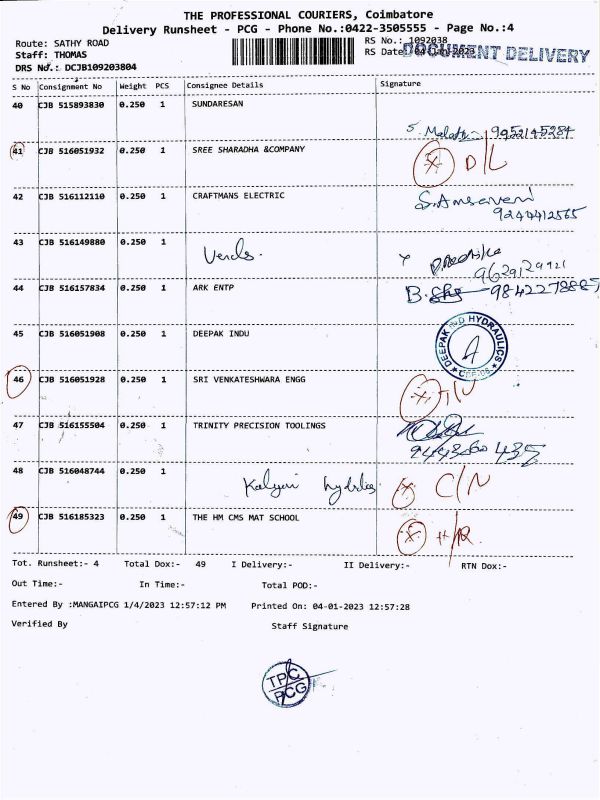 THE PROFESSIONAL COURIERS, Coimbatore
Delivery Runsheet - PCG - Phone No.:0422-3505555 - Page No.:4
Route: SATHY ROAD
RS No.: 1092038
Staff: THOMAS
RS Date: 04-Jan-2023
DOCUMENT DELIVERY
DRS No.: DCJB109203804
S No Consignment No Weight PCS Consignee Details Signature
40 CJB 515893830 0.250 1 SUNDARESAN
9952145284
41 CJB 516051932 0.250 1 SREE SHARADHA &COMPANY D/L
42 CJB 516112110 0.250 1 CRAFTMANS ELECTRIC
9244412565
43 CJB 516149880 0.250 1
9629129921
44 CJB 516157834 0.250 1 ARK ENTP
45 CJB 516051908 0.250 1 DEEPAK INDU
DEEPAK IND HYDRAULICS
46 CJB 516051928 0.250 1 SRI VENKATESHWARA ENGG
47 CJB 516155504 0.250 1 TRINITY PRECISION TOOLINGS
48 CJB 516048744 0.250 1 C/N
49 CJB 516185323 0.250 1 THE HM CMS MAT SCHOOL
Tot. Runsheet:- 4 Total Dox:- 49 I Delivery:- II Delivery:- RTN Dox:-
Out Time:- In Time:- Total POD:-
Entered By :MANGAIPCG 1/4/2023 12:57:12 PM Printed On: 04-01-2023 12:57:28
Verified By Staff Signature
TPC
PCG